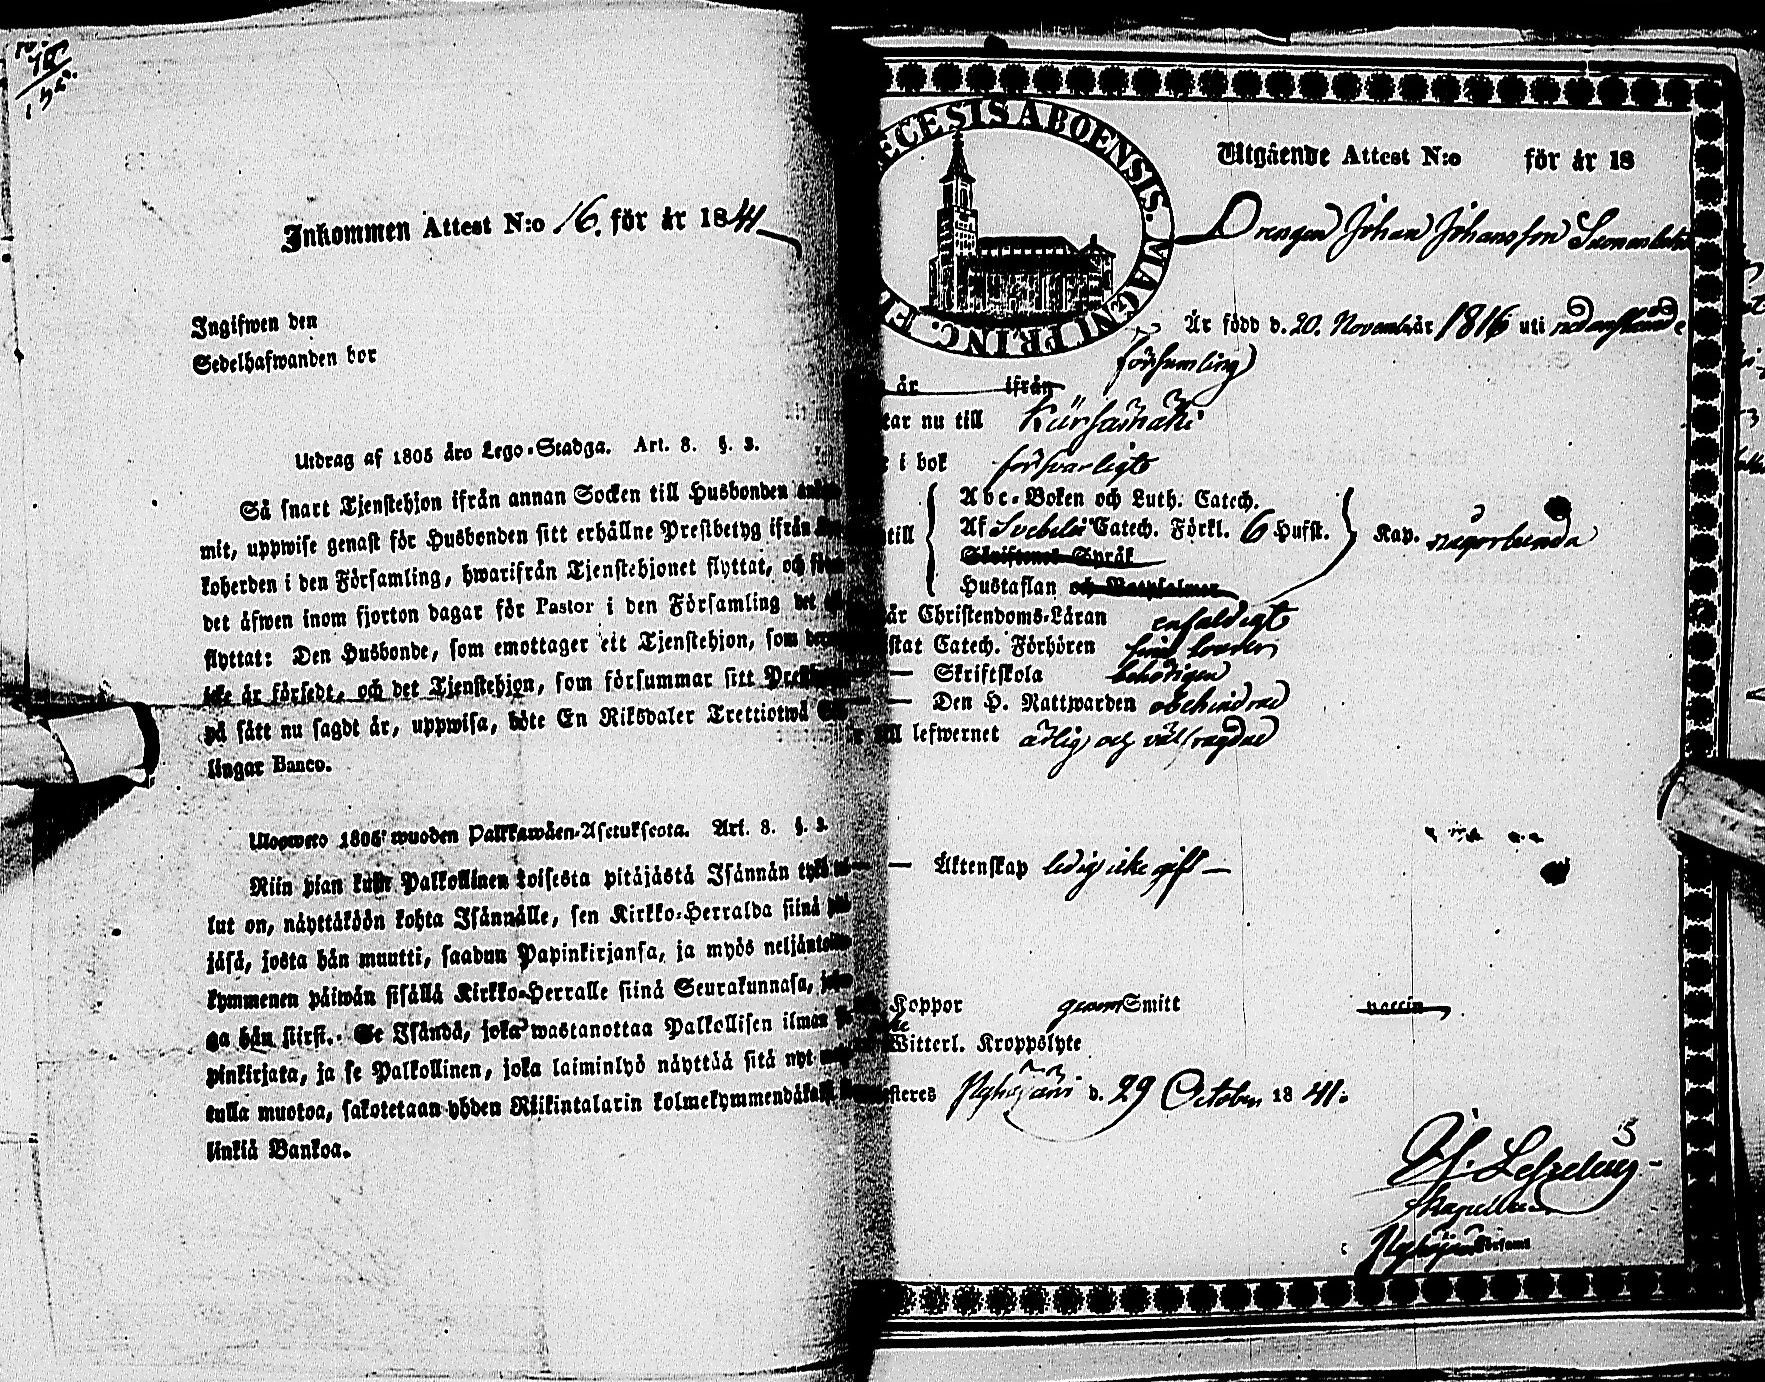 Inkommen Attest N:o 16. för år 1841
Ingifwen den
Sedelhafwanden bor
Utdrag af 1805 års Lego-Stadga. Art. 8. §. 3.
Så snart Tjenstehjon ifrån annan Socken till Husbonden
mit, uppwise genast för Husbonden sitt erhållne Prestbetyg ifrån
koherden i den Församling, hwarifrån Tjenstehjonet flyttat, och
det äfwen inom fjorton dagar för Pastor i den Församling det
flyttat: Den Husbonde, som emottager ett Tjenstehjon, som
icke är försedt, och det Tjenstehjon, som försummar sitt
på sätt nu sagdt är, uppwisa, böte En Riksdaler Trettiotwå
lingar Banco.
Ulosweto 1805 wuoden Palkkawäen-Asetuksesta. Art. 8. §. 3.
Niin pian kuin Palkollinen toisesta pitäjästä Isännän tykö
lut on, näyttäköön kohta Isännälle, sen Kirkko-Herralda siinä
jäsä, josta hän muutti, saadun Papinkirjansa, ja myös
kymmenen päiwän sisällä Kirkko-Herralle siinä Seurakunnasa,
ga hän siirst. Se Isändä, joka wastanottaa Palkollisen ilman
pinkirjata, ja se Palkollinen, joka laiminlyö näyttää sitä nyt
tulla muotoa, sakotetaan yhden Riikintalarin
linkiä Bankoa.
ECESIS ABOENSIS. MAGNI PRINC. F
Utgående Attest N:o för år 18
Drengen Johan Johansson
Är född d. 20. Novemb år 1816 uti nedanstående
församling
är ifrån
tar nu till Kiersämäki
i bok försvarligt
till
Abc-Boken och Luth. Catech.
Af Svebelii Catech. Förkl. 6 Hufst.
Skriftenes Språk
Hustaflan och Botpsalmer
Kap. någorlunda
är Christendoms-Läran enfaldigt
stat Catech. Förhören
— Skriftskola behörigen
— Den H. Nattwarden obehindrad
till lefwernet ärlig och välfrägdad
— Äktenskap ledig icke gift —
Koppor genom Smitt vaccin
Witterl. Kroppslyte
steres Pyhäjärvi d. 29 October 1841.